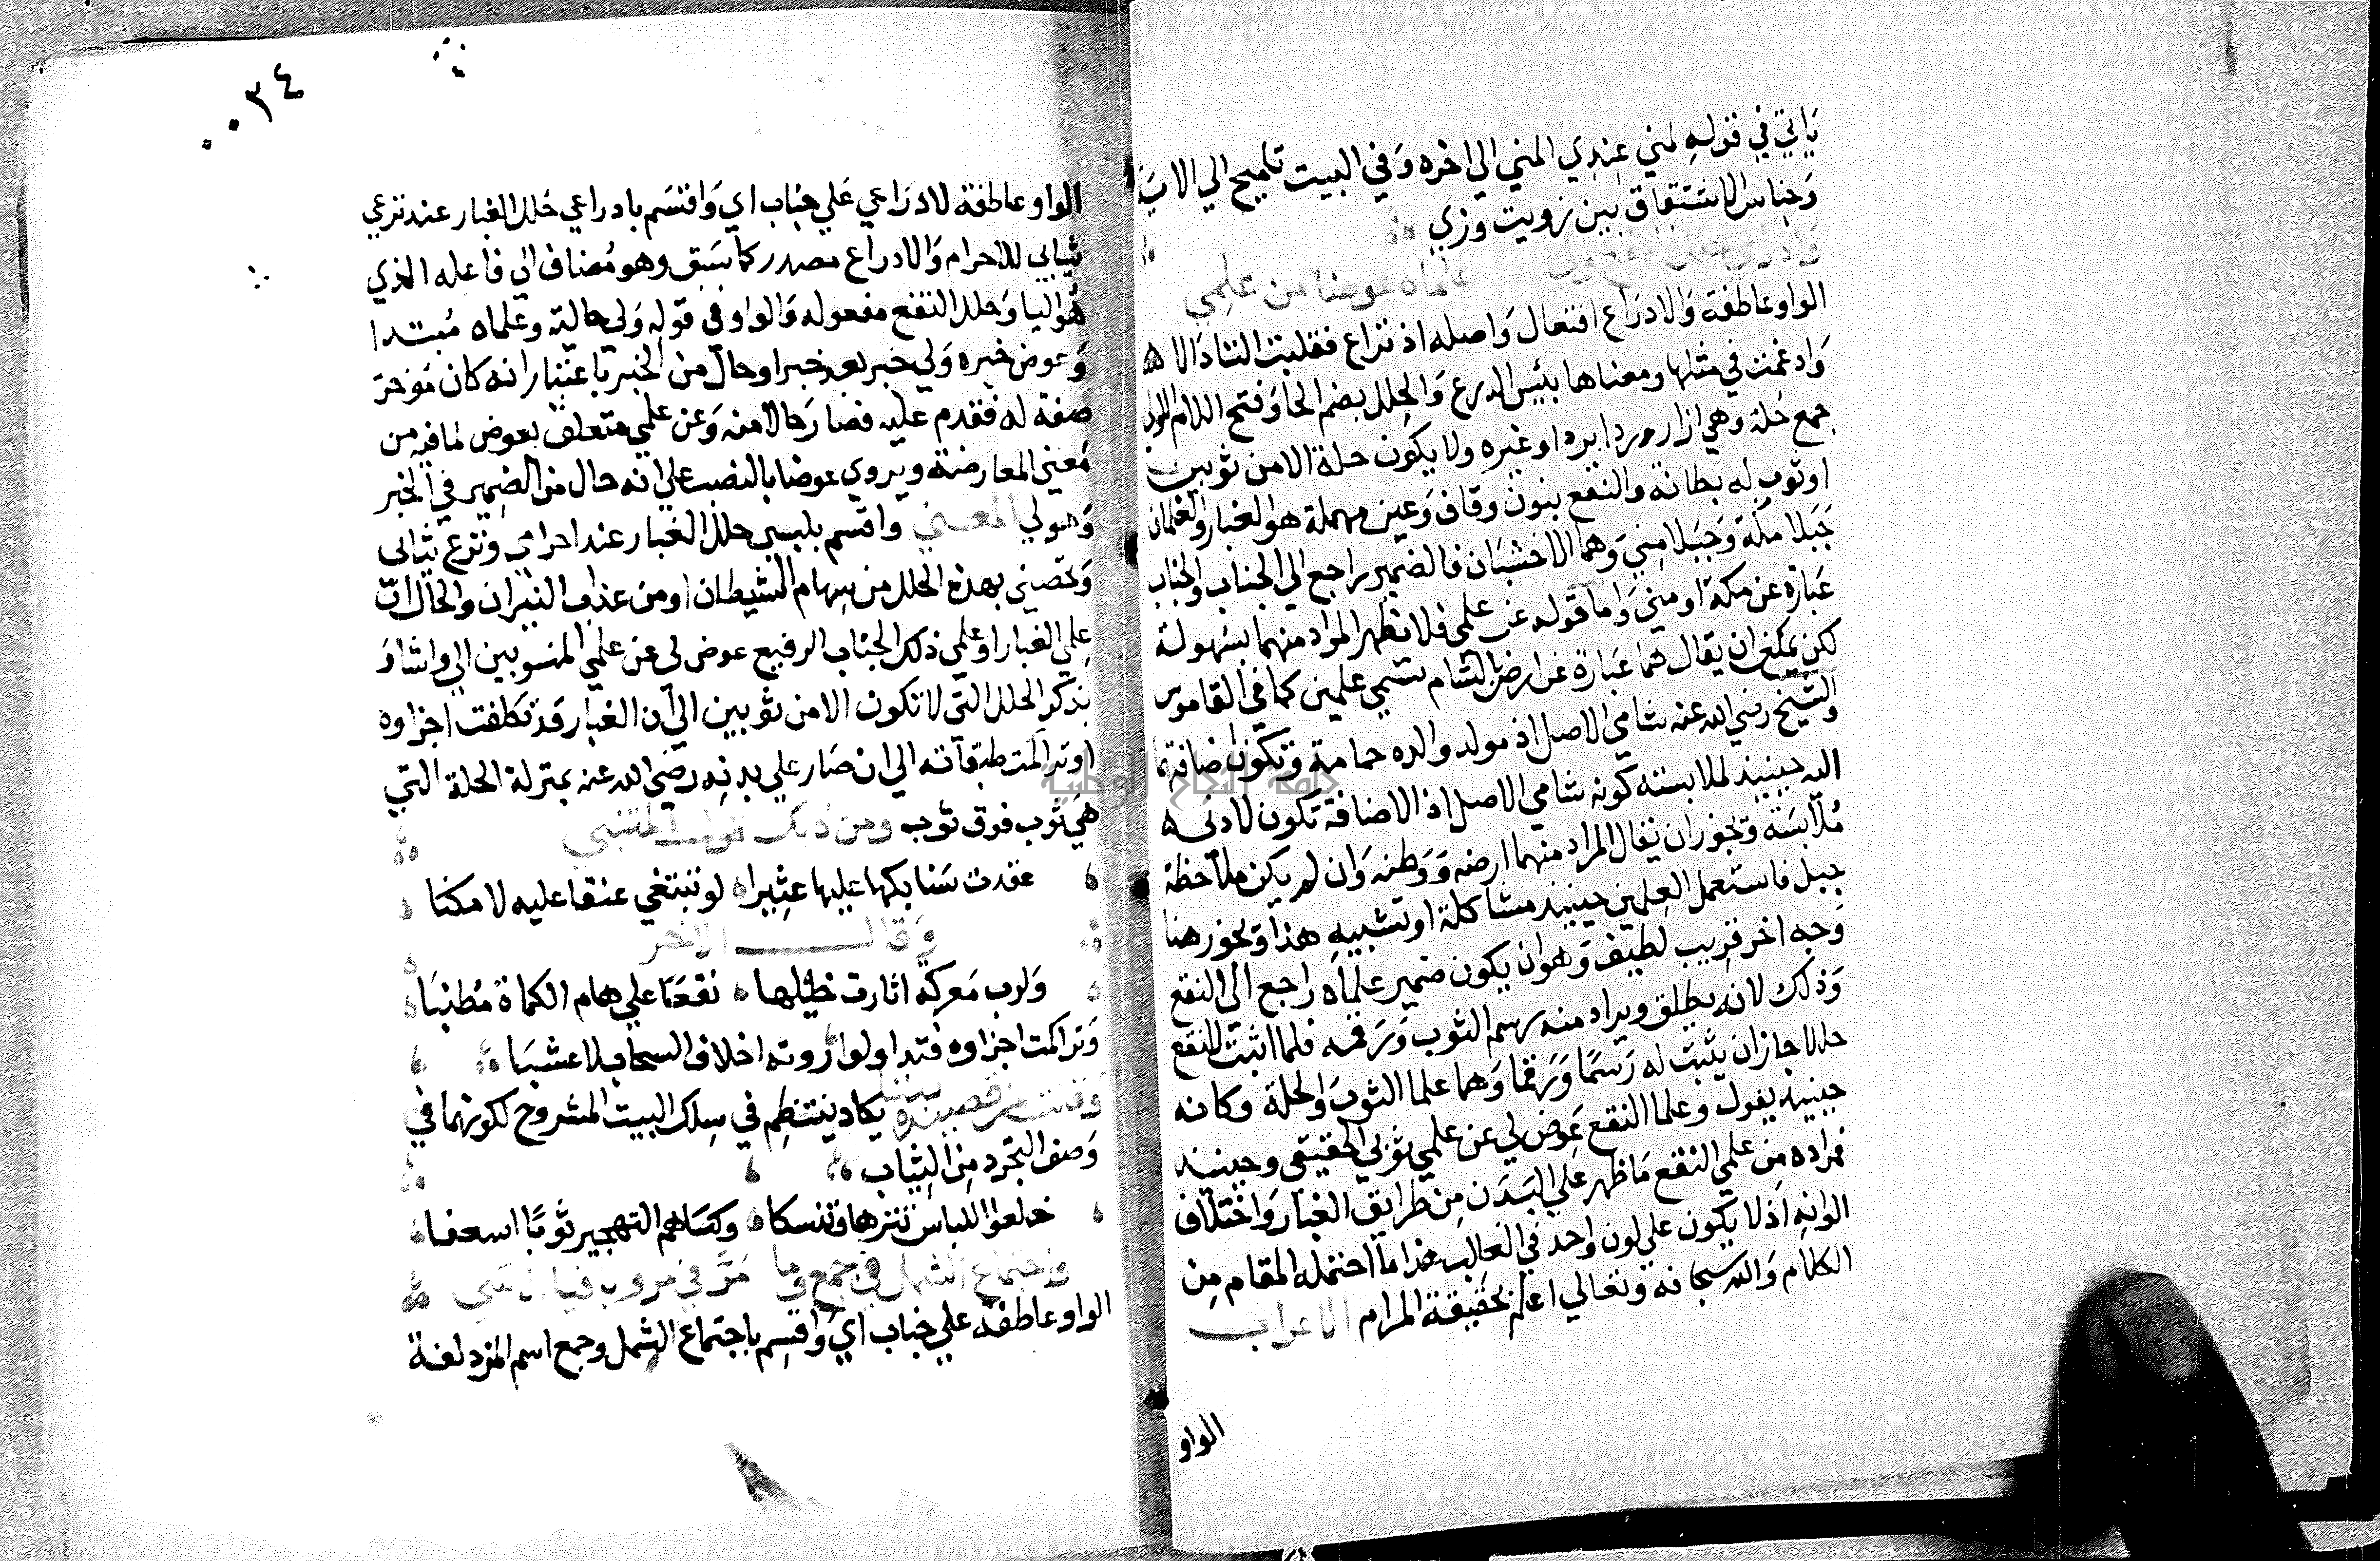 ياتي في قوله لمني عندي المني الي اخره وفي البيت تلميح الي الاية
وجناس الاشتقاق بين زويت وزي
وادراعي حلل النقع ولي علماه عوضا من علمي
الواو عاطفة والادراع افتعال واصله اذتراع فقلبت التا دالا
وادغمت في مثلها ومعناها بلبس الدرع والحلل بضم الحا وفتح اللام الاول
جمع حلة وهي ازار وردا برد او غيره ولا يكون حلة الا من ثوبين
او ثوب له بطانه والنقع بنون وقاف وعين مهملة هو الغبار والعلمان
جبلا مكة وجبلا مني وهما الاخشبان فالضمير راجع الي الجناب والجناب
عبارة عن مكة او مني واما قوله عن علمي فلا تظهر المراد منهما بسهولة
لكن يمكن ان يقال هما عبارة عن ارض بالشام تسمي علمين كما في القاموس
والشيخ رضي الله عنه شامي الاصل اذ مولد والده حما مية وتكون اضافتهما
اليه حينيذ لملابسته كونه شامي الاصل اذ الاضافة تكون لادني
ملابسة وتجوز ان يقال المراد منهما ارضه ووطنه وان لم يكن ملاحظة
جبل فاستعمل العلمين حينيذ مشاكلة او تشبيه هذا ويجوز هنا
وجه اخر قريب لطيف وهو ان يكون ضمير علماه راجع الي النقع
وذلك لانه يطلق ويراد منه رسم الثوب ورقمه فلما اثبت للنقع
حللا جاز ان يثبت له رسما ورقما وهما علما الثوب والحلة وكانه
حينيذ يقول وعلما النقع عوض لي عن علمي ثوبي الحقيقي وحينيذ
فمراده من علمي النقع ما ظهر علي البدن من طرايق الغبار واختلاف
الوانه اذ لا يكون علي لون واحد في الغالب هذا ما احتمله المقام من
الكلام والله سبحانه وتعالي اعلم بحقيقة المرام الاعراب
الواو
٠٠٣٤
الواو عاطفة لادراعي علي جناب اي واقسم بادراعي حلل الغبار عند نزعي
ثيابي للاحرام والادراع مصدر كما سبق وهو مضاف الي فاعله الذي
هو اليا وحلل النقع مفعوله والواو في قوله ولي حالية وعلماه مبتدا
وعوض خبره ولي خبر بعد خبر او حال من الخبر باعتبار انه كان موخر
صفة له فقدم عليه فصار حالا منه وعن علمي متعلق بعوض لما فيه من
معني المعارضة ويروي عوضا بالنصب علي انه حال من الضمير في الخبر
وهو لي المعني واقسم بلبسي حلل الغبار عند احرامي ونزع ثيابي
وتحصيني بهذه الحلل من سهام الشيطان او من عذاب النيران والحال ان
علمي الغبار او علمي ذلك الجناب الرفيع عوض لي عن علمي المنسوبين الي واشار
بذكر الحلل التي لا تكون الا من ثوبين الي ان الغبار قد تكاثفت اجزاوه
او تراكمت طبقاته الي ان صار علي بدنه رضي الله عنه بمنزلة الحلة التي
هي ثوب فوق ثوب ومن ذلك قول المتنبي
عقدت سنابكها عليها عثيرا لو تبتغي عنقا عليه لامكنا
وقال الاخر
ولرب معركة اثارت خيلها نقعا علي هام الكماة مطنبا
وتراكمت اجزاوه فتدا ولو اروته اخلاف السحاب لاعشبا
وقلت من قصيدة بيتا يكاد ينتظم في سلك البيت المشروح لكونهما في
وصف التجرد من الثياب
خلعوا اللباس تنزها وتنسكا وكساهم التهجير ثوبا اسعفا
واجتماع الشمل في جمع وما مر في مر وبافيا الاشي
الواو عاطفة علي جناب اي واقسم باجتماع الشمل وجمع اسم المزدلفة